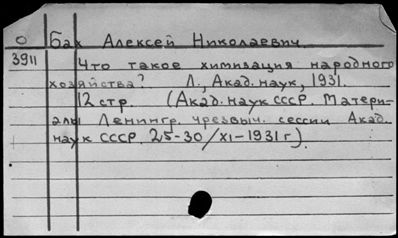 О Бах Алексей Николаевич.
3911 Что такое химизация народного
хозяйства? Л., Акад. наук, 1931.
12 стр. (Акад. наук СССР. Матери-
алы Ленингр. чрезвыч. сессии Акад.
наук СССР. 25-30/XI-1931 г).